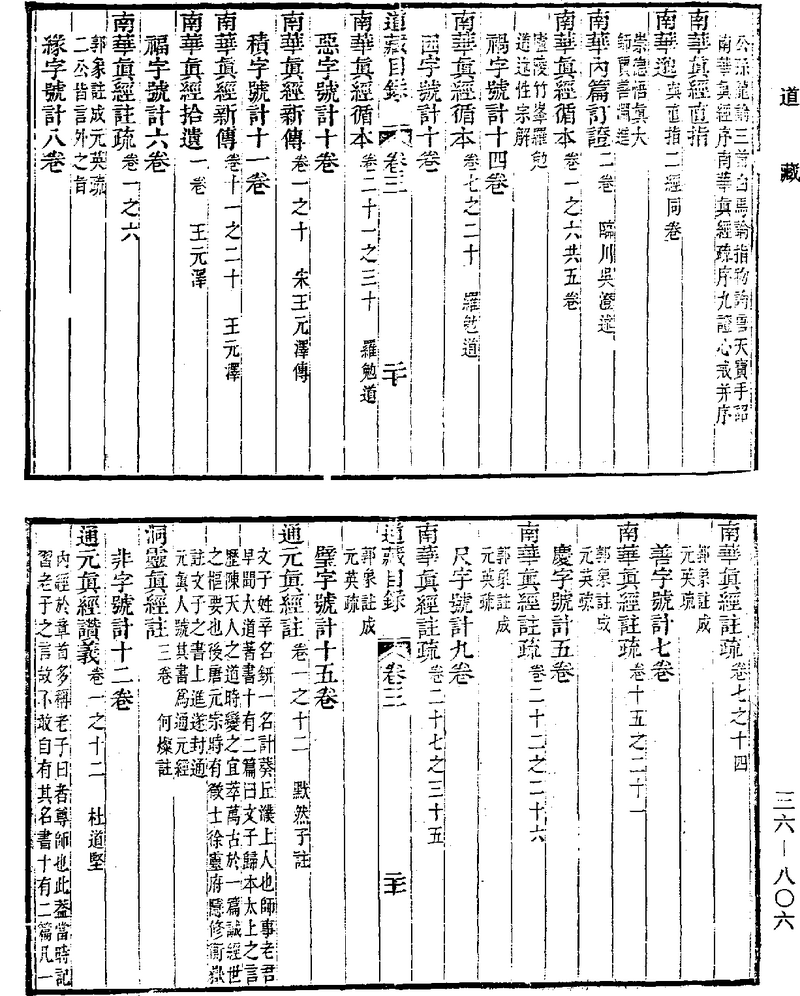 道藏
公孫龍論三首白馬論指物論雪天寶手詔
南華眞經序南華眞經疏序九證心戒并序
南華眞經直指
南華邈 與直指二經同卷
崇德悟眞大
師賈善淵進
南華內篇訂證 二卷 臨川吳澄述
南華眞經循本 卷一之六共五卷
禍字號計十四卷
廬陵竹峯羅勉
道述性宗解
南華眞經循本 卷七之二十 羅勉道
因字號計十卷
道藏目錄 卷三 二十
南華眞經循本 卷二十一之三十 羅勉道
惡字號計十卷
南華眞經新傳 卷一之十 宋王元澤傳
積字號計十一卷
南華眞經新傳 卷十一之二十 王元澤
南華眞經拾遺 一卷 王元澤
福字號計六卷
南華眞經註疏 卷一之六
郭象註成元英疏
二公皆言外之旨
緣字號計八卷
南華眞經註疏 卷七之十四
郭象註成
元英疏
善字號計七卷
南華眞經註疏 卷十五之二十一
郭象註成
元英疏
慶字號計五卷
南華眞經註疏 卷二十二之二十六
郭象註成
元英疏
尺字號計九卷
南華眞經註疏 卷二十七之三十五
道藏目錄 卷三 二十
郭象註成
元英疏
璧字號計十五卷
通元眞經註 卷一之十二 默然子註
文子姓辛名鈃一名計葵丘濮上人也師事老君
早聞大道著書十有二篇曰文子歸本太上之言
歷陳天人之道時變之宜萃萬古於一篇誠經世
之樞要也後唐元宗時有徵士徐靈府隱修衡嶽
註文子之書上進遂封通
元眞人號其書爲通元經
洞靈眞經註 三卷 何燦註
非字號計十二卷
通元眞經讚義 卷一之十二 杜道堅
內經於章首多稱老子曰者尊師也此葢當時記
習老子之言故不敢自有其名書十有二篇凡一
三六—八〇六